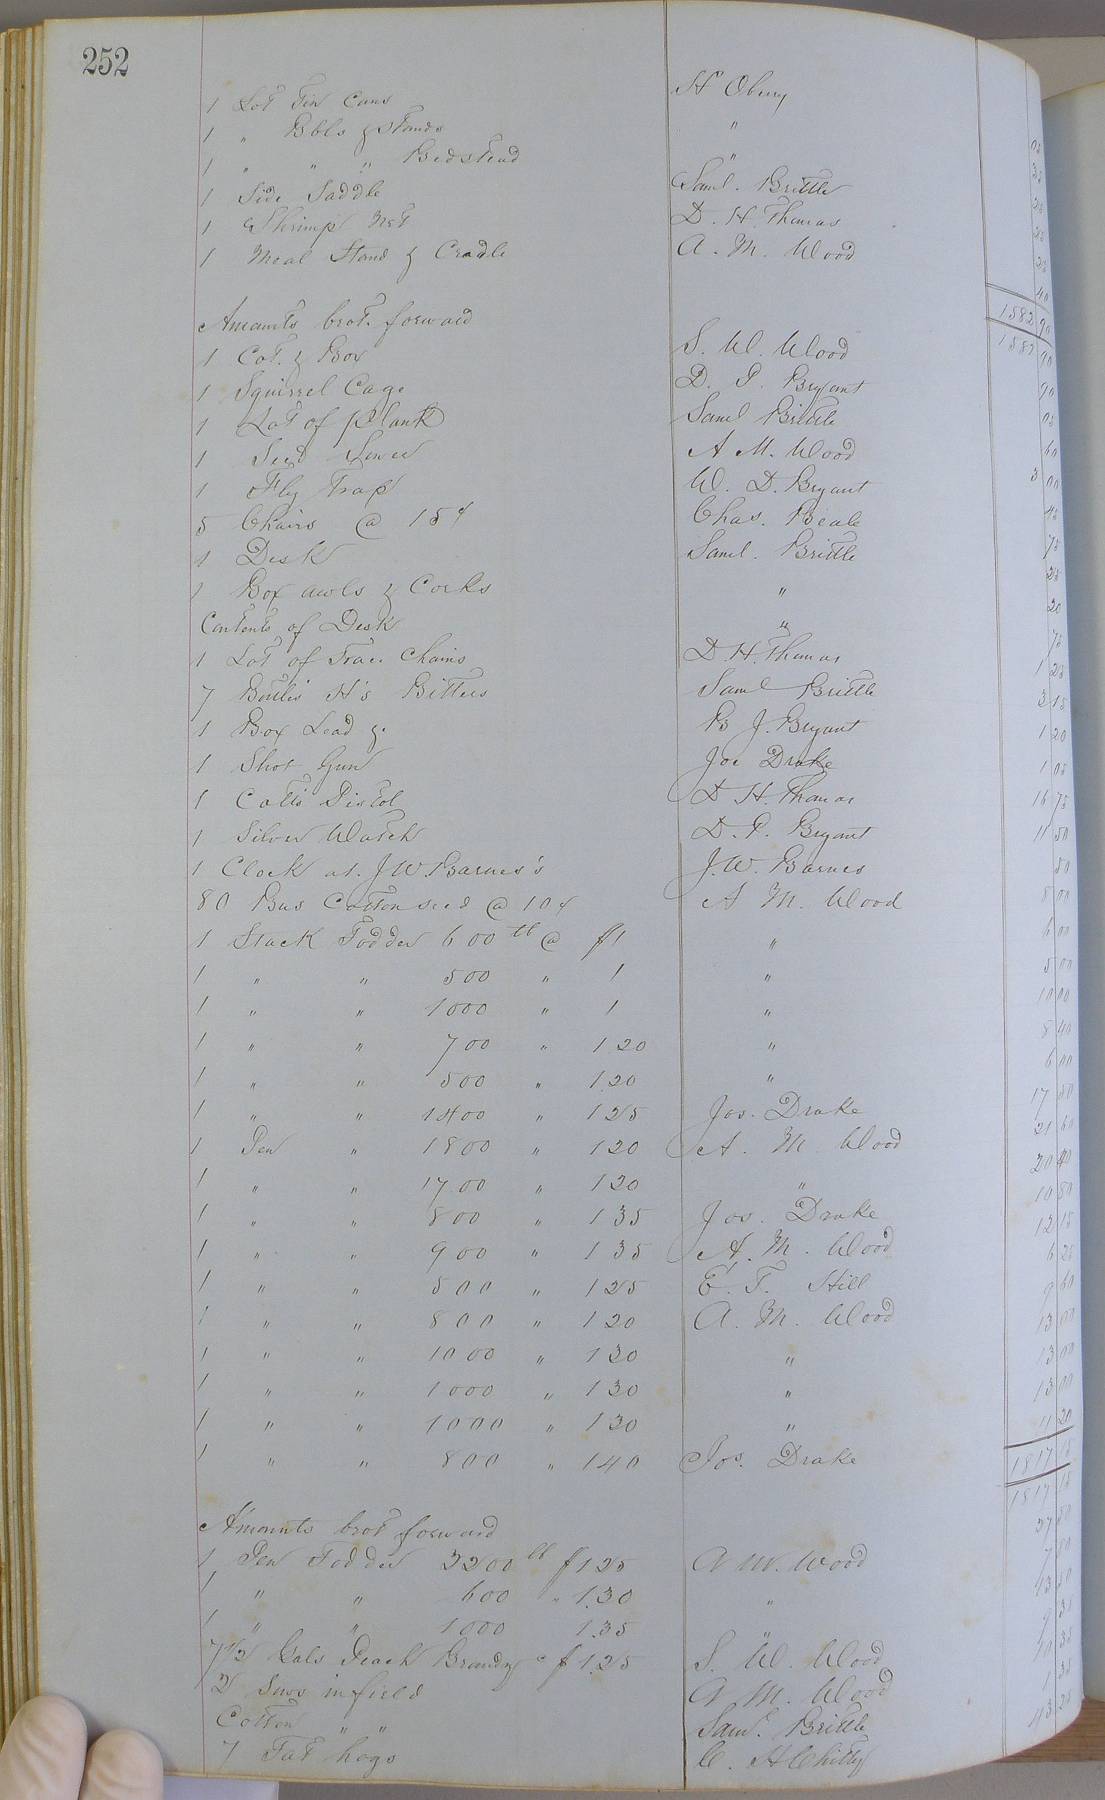 252
1 Lot Tin Cans H Obery 05
1 " Bbls & Stands " 35
1 " " " Bedstead " 25
1 Side Saddle Saml. Brittle 25
1 Shrimp Net D. H. Thomas 25
1 Meal Stand & Cradle A. M. Wood 40
1582 90
Amounts brot. forward 1582 90
1 Cot. & Box S. W. Wood 90
1 Squirrel Cage D. P. Bryant 05
1 Lot of Plank Saml Brittle 60
1 Seed Sower A M. Wood 3 00
1 Fly Trap W. D. Bryant 45
5 Chairs @ 15¢ Chas. Beale 75
1 Desk Saml. Brittle 25
1 Box awls & Corks " 20
Contents of Desk " 75
1 Lot of Trace Chains D. H. Thomas 1 25
7 Bottles H's Bitters Saml Brittle 3 15
1 Box Lead &. B J. Bryant 1 20
1 Shot Gun Joe Drake 1 05
1 Colts Pistol D H. Thomas 16 75
1 Silver Watch D. P. Bryant 11 50
1 Clock at. J W. Barnes's J. W. Barnes 50
80 Bus Cotton seed @ 10¢ A M. Wood 8 00
1 Stack Fodder 600 lb @ $1 " 6 00
1 " " 500 " 1 " 5 00
1 " " 1000 " 1 " 10 00
1 " " 700 " 1 20 " 8 40
1 " " 500 " 1 20 " 6 00
1 " " 1400 " 1 25 Jos. Drake 17 50
1 Pen " 1800 " 1 20 A. M. Wood 21 60
1 " " 1700 " 1 20 " 20 40
1 " " 800 " 1 35 Jos. Drake 10 80
1 " " 900 " 1 35 A. M. Wood 12 15
1 " " 500 " 1 25 E. T. Hill 6 25
1 " " 800 " 1 20 A. M. Wood 9 60
1 " " 1000 " 1 30 " 13 00
1 " " 1000 " 1 30 " 13 00
1 " " 1000 " 1 30 " 13 00
1 " " 800 " 1 40 Jos. Drake 11 20
1817 15
Amounts brot forward 1817 15
1 Pen Fodder 3200 lb $1 25 A M. Wood
1 " " 600 " 1.30 " 7 80
1 " " 1000 1.35 " 13 50
7 1/2 Gals Peach Brandy " $1.25 S. W. Wood 9 35
2 Sows in field A M. Wood
Cotton " " Saml. Brittle 1 35
7 Fat hogs C. H Chitty 43 25